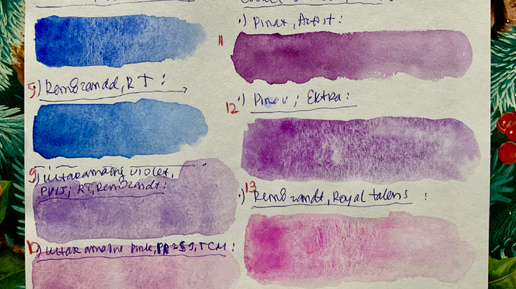 5) Rembrandt, RT :
9) Ultramarine Violet,
PV15; RT, Rembrandt:
10) Ultramarine Pink, PR259, TCM :
11 ·) Pinax, Artist :
12 Pinax; Extra :
13 ·) Rembrandt, Royal talens :